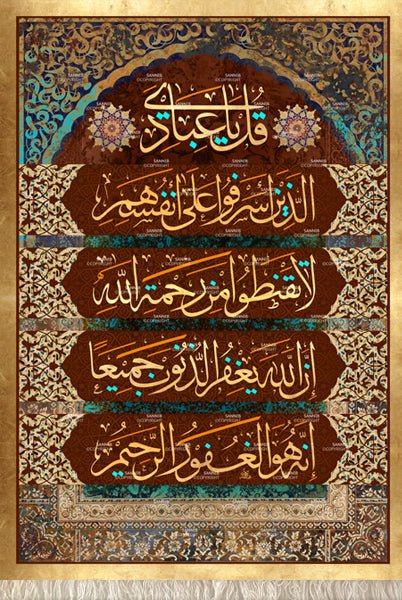 قُلْ يَا عِبَادِيَ
الَّذِينَ أَسْرَفُوا عَلَىٰ أَنفُسِهِمْ
لَا تَقْنَطُوا مِن رَّحْمَةِ اللَّهِ
إِنَّ اللَّهَ يَغْفِرُ الذُّنُوبَ جَمِيعًا
إِنَّهُ هُوَ الْغَفُورُ الرَّحِيمُ
SANNEB
©COPYRIGHT